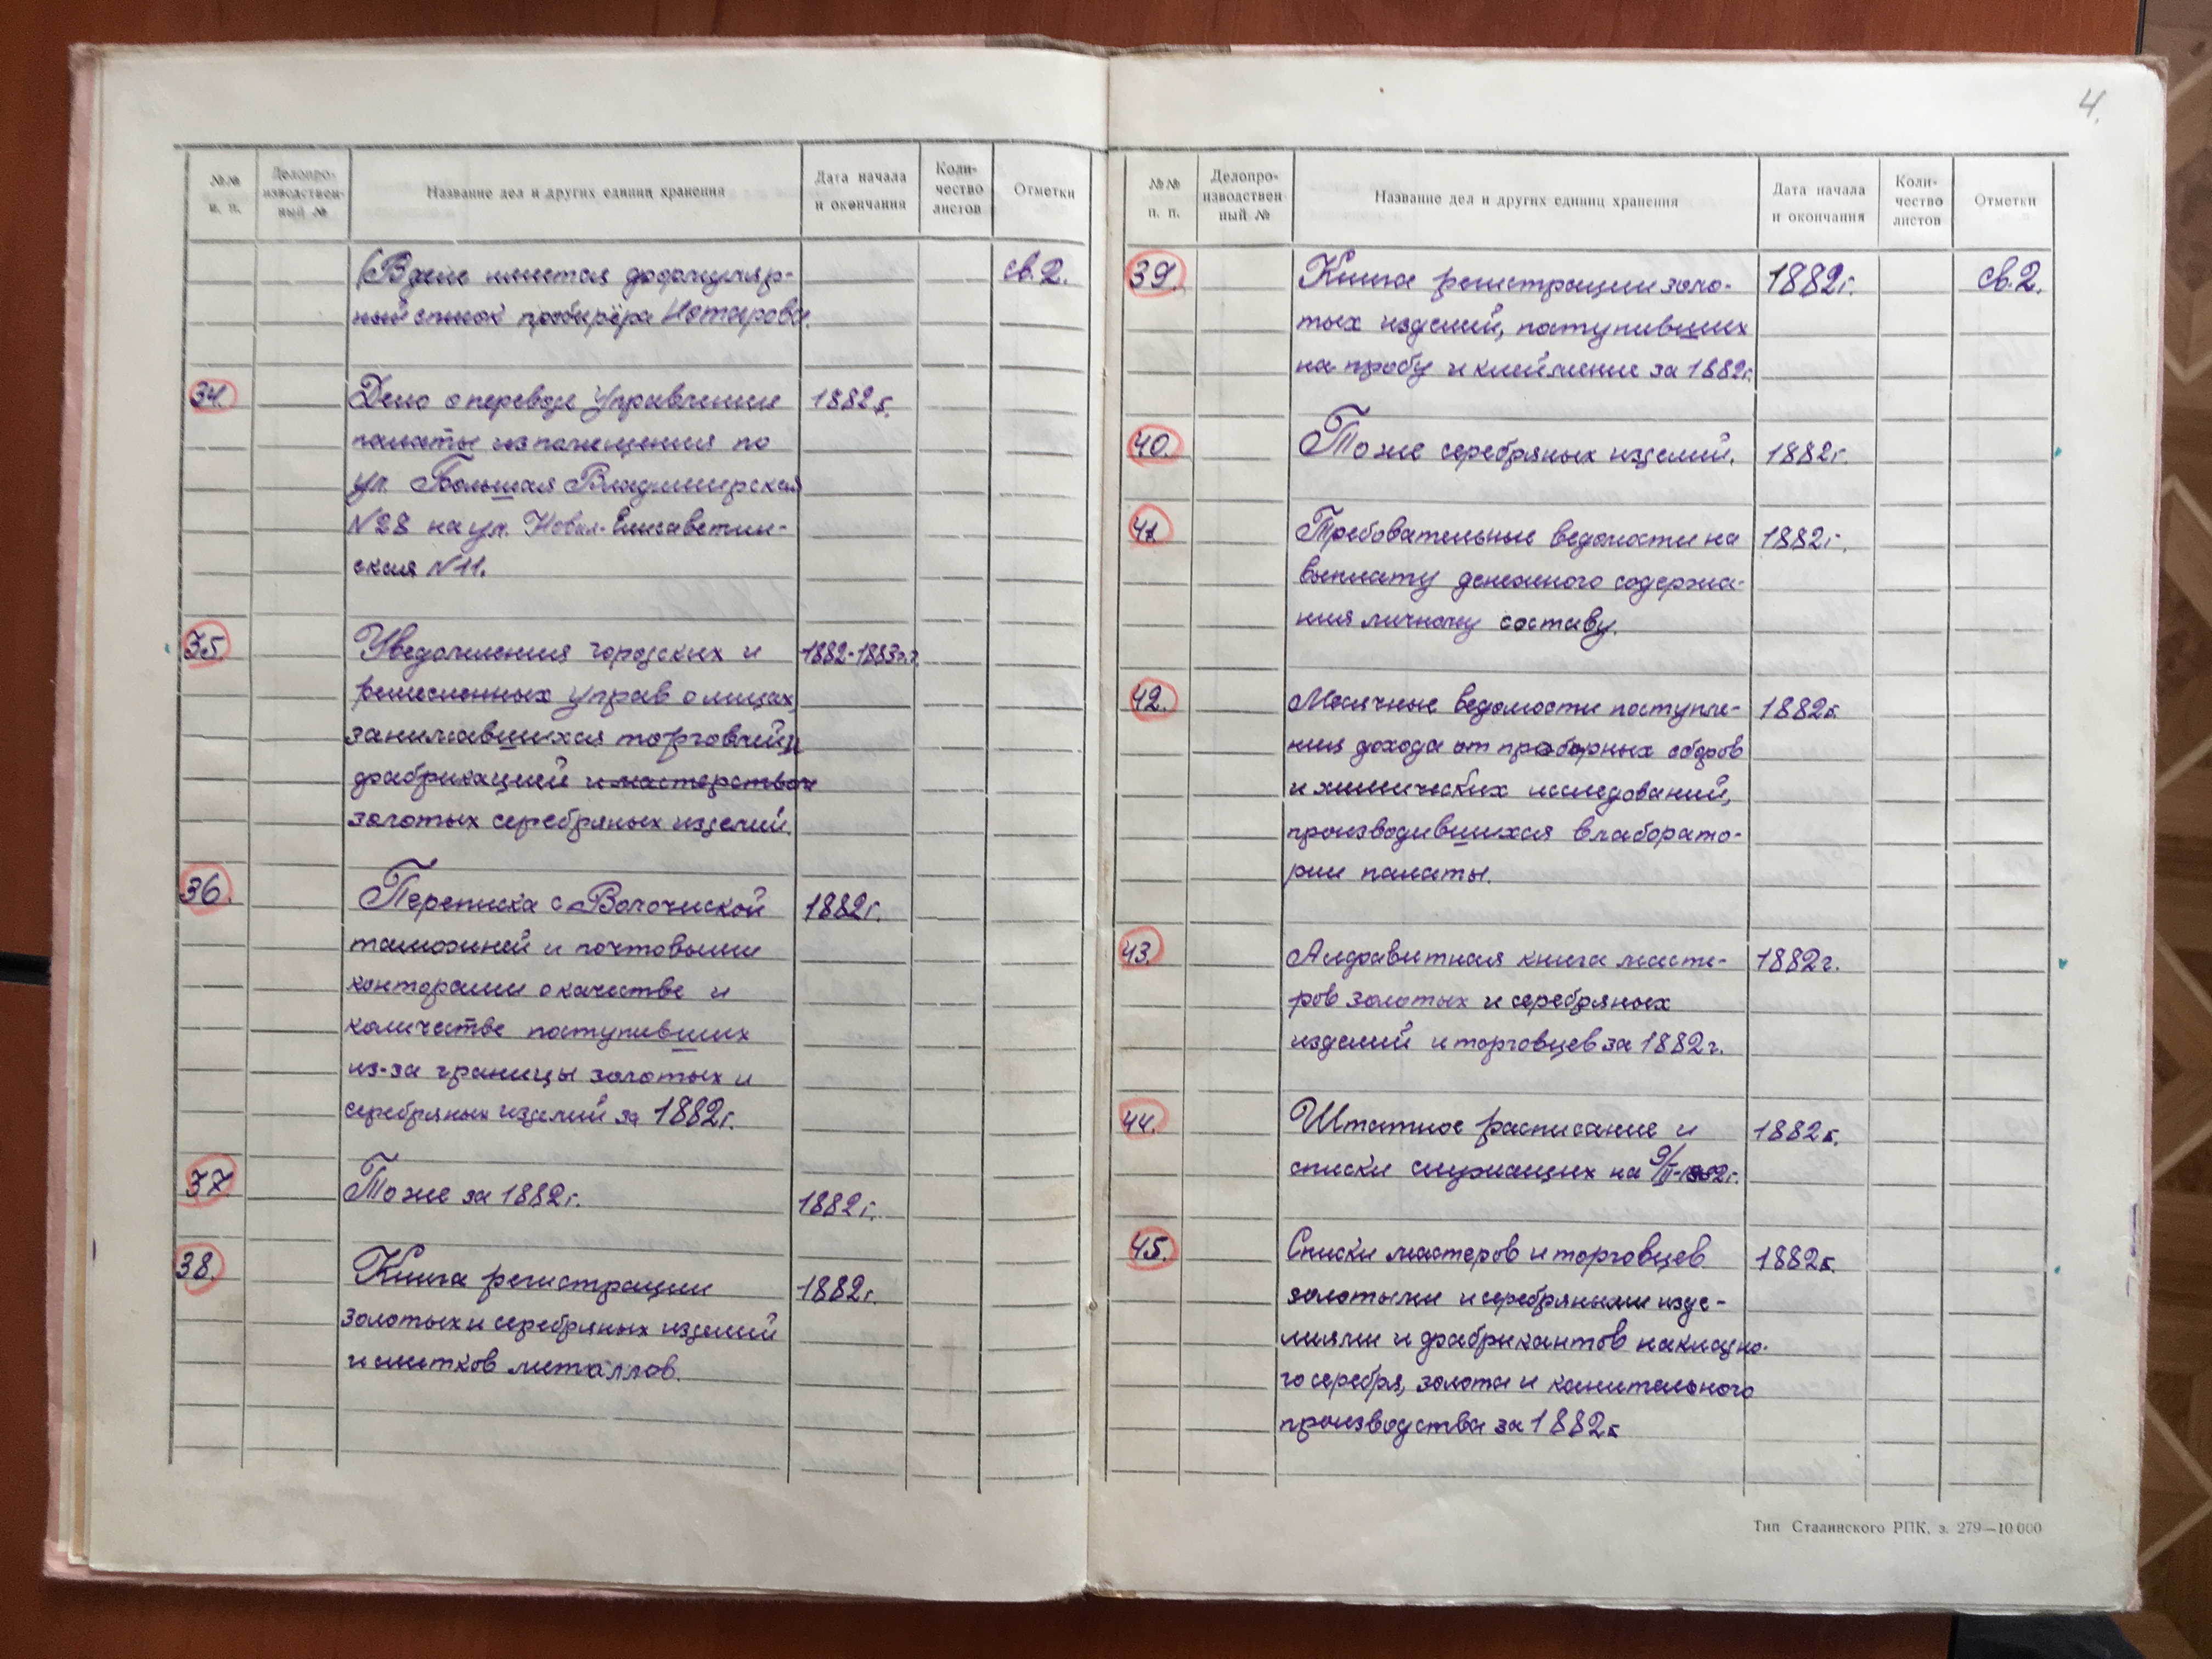 4.
№№ п. п.
Делопро-
изводствен-
ный №
Название дел и других единиц хранения
Дата начала
и окончания
Коли-
чество
листов
Отметки
(В деле имеется формуляр-
ный список пробирёра Нотарова. св. 2.
34. Дело о переводе Управления 1882 г.
палаты из помещения по
ул. Большая Владимирская
N 28 на ул. Ново-Елисаветин-
ская N 11.
35. Уведомления городских и 1882-1883 г.г.
ремесленных управ о лицах,
занимавшихся торговлей и
фабрикацией и мастерством
золотых серебряных изделий.
36. Переписка с Волочиской 1882 г.
таможней и почтовыми
конторами о качестве и
количестве поступивших
из-за границы золотых и
серебряных изделий за 1882 г.
37 То же за 1882 г. 1882 г.
38. Книга регистрации 1882 г.
золотых и серебряных изделий
и слитков металлов.
№№
п. п.
Делопро-
изводствен-
ный №
Название дел и других единиц хранения
Дата начала
и окончания
Коли-
чество
листов
Отметки
39. Книга регистрации золо- 1882 г. св. 2.
тых изделий, поступивших
на пробу и клеймение за 1882 г.
40. То же серебряных изделий. 1882 г.
41. Требовательные ведомости на 1882 г.
выплату денежного содержа-
ния личному составу.
42. Месячные ведомости поступле- 1882 г.
ния дохода от пробирных сборов
и химических исследований,
производившихся в лаборато-
рии палаты.
43. Алфавитная книга масте- 1882 г.
ров золотых и серебряных
изделий и торговцев за 1882 г.
44. Штатное расписание и 1882 г.
списки служащих на 9/II-1882 г.
45. Списки мастеров и торговцев 1882 г.
золотыми и серебряными изде-
лиями и фабрикантов накладно-
го серебра, золота и канительного
производства за 1882 г.
Тип Сталинского РПК, з. 279—10 000